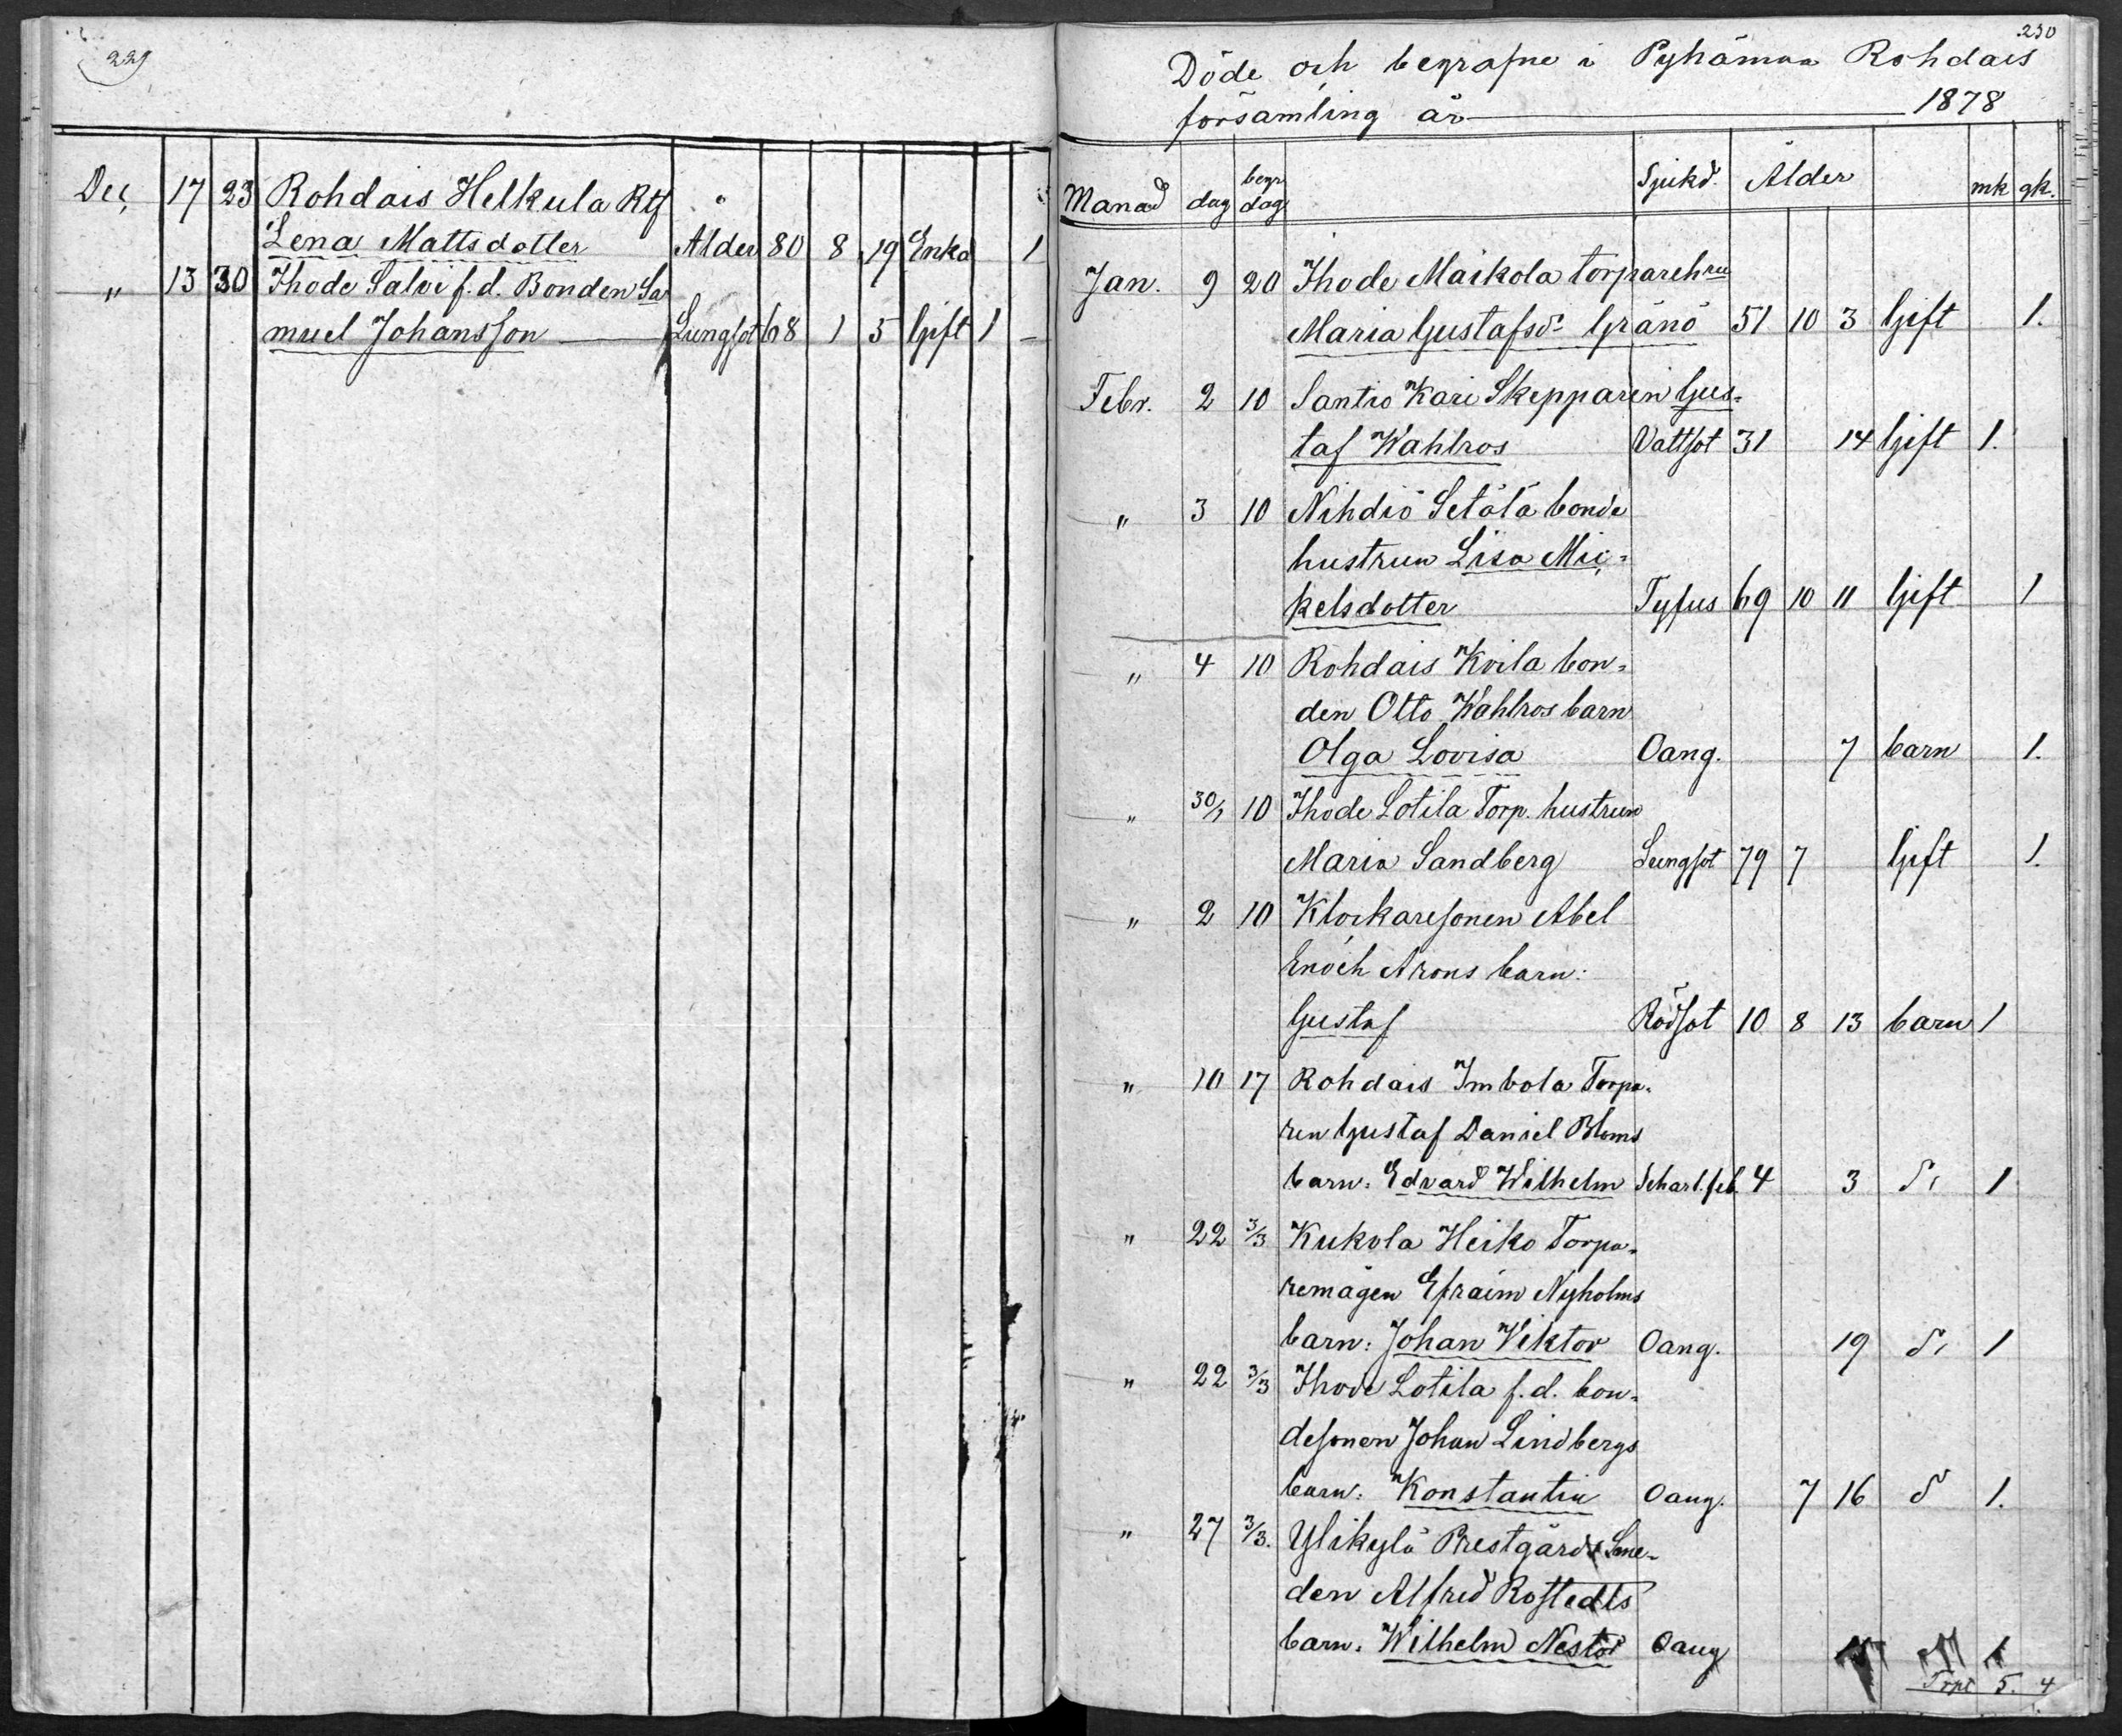 229
Dec, 17 23 Rohdais Helkula Rtf
Lena Mattsdotter Ålder 80 8 19 Enka 1
" 13 30 Ihode Salvi f.d. Bonden Sa
muel Johansson Lungsot 68 1 5 Gift 1 -
230
Döde och begrafne i Pyhämaa Rohdais
församling år 1878
Månad dag begr dag Sjukd. Ålder mk qk.
Jan. 9 20 Ihode Maikola torparehru
Maria Gustafsdr Gränö 51 10 3 Gift 1.
Febr. 2 10 Santio Kari Skepparen Gus-
taf Wahlros Vattsot 31 14 Gift 1.
" 3 10 Nihdiö Setälä bonde
hustrun Lisa Mic-
kelsdotter Tyfus 69 10 11 Gift 1
" 4 10 Rohdais Kvila bon-
den Otto Wahlros barn
Olga Lovisa Oang. 7 barn 1.
" 30/1 10 Ihode Lotila Torp. hustrun
Maria Sandberg Lungsot 79 7 Gift 1.
" 2 10 Klockaresonen Abel
Enoch Arons barn:
Gustaf Rödsot 10 8 13 barn 1
" 10 17 Rohdais Imbola Torpa-
ren Gustaf Daniel Bloms
barn. Edvard Wilhelm Scharl.feb. 4 3 d: 1
" 22 3/3 Kukola Heiko Torpa-
remågen Efraim Nyholms
barn: Johan Viktor Oang. 19 d: 1
" 22 3/3 Ihode Lotila f.d. bon-
desonen Johan Lindbergs
barn: Konstantin Oang. 7 16 d 1.
" 27 3/3. Ylikylä Prestgårds Sme-
den Alfred Rostedts
barn. Wilhelm Nestor Oang 1
Trpt 5. 4